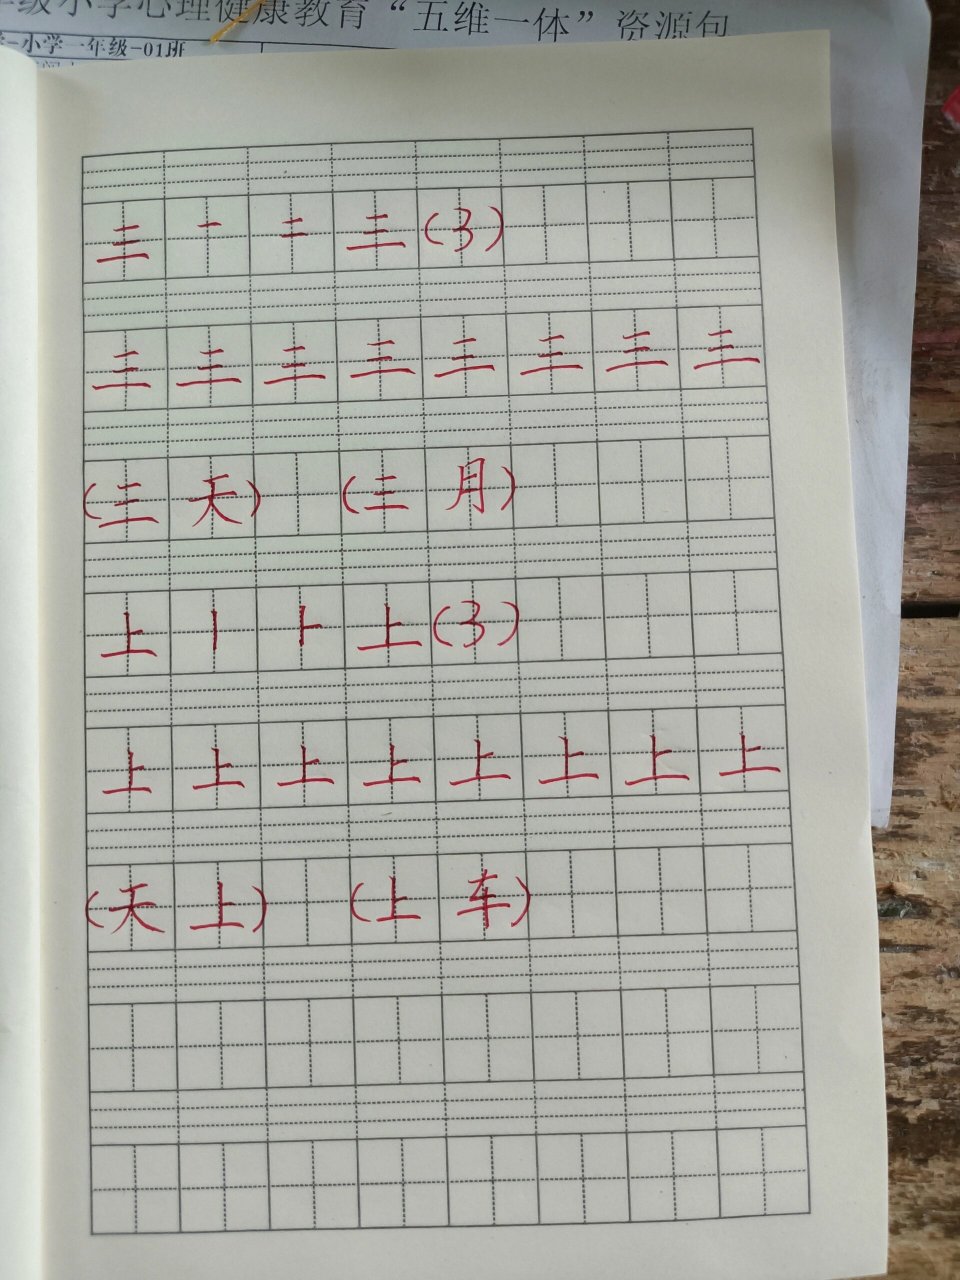 级小学心理健康教育“五维一体”资源包
小学一年级-01班
三 一 二 三 (3)
三 三 三 三 三 三 三 三
(三 天) (三 月)
上 丨 ⺊ 上 (3)
上 上 上 上 上 上 上 上
(天 上) (上 车)